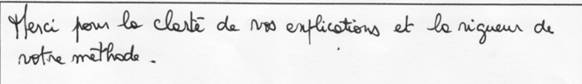 Merci pour la clarté de vos explications et la rigueur de
votre méthode.